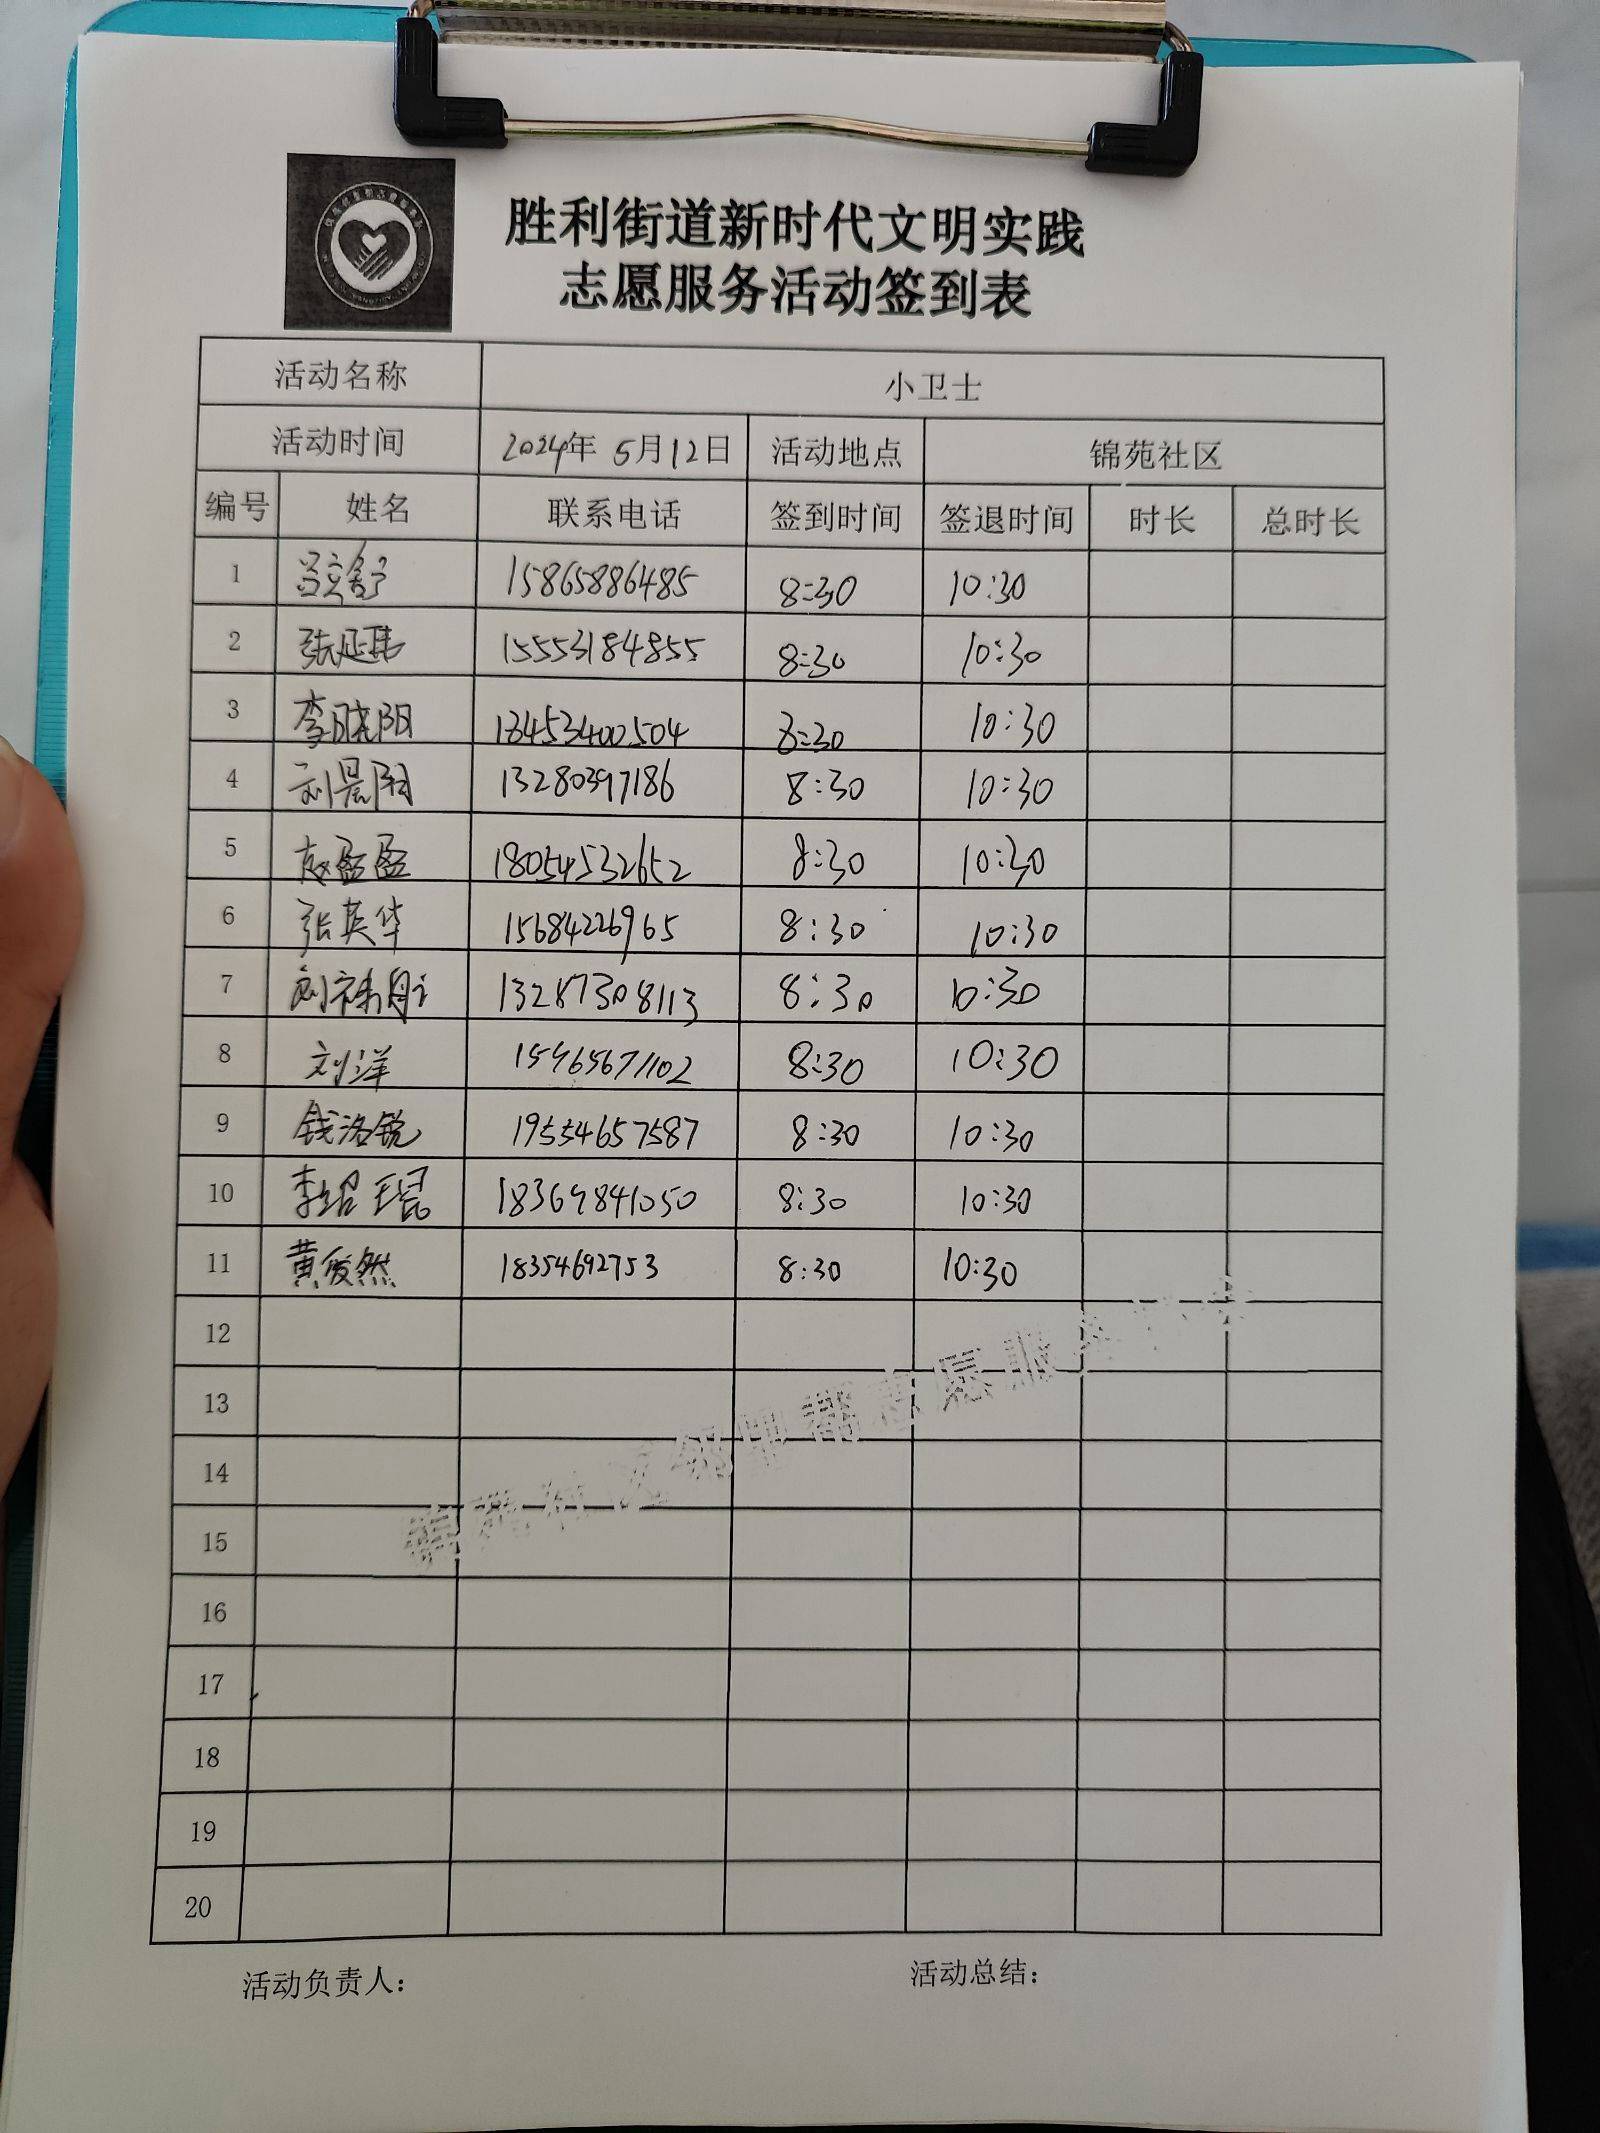 胜利街道新时代文明实践
志愿服务活动签到表
活动名称 小卫士
活动时间 2024年 5月12日 活动地点 锦苑社区
编号 姓名 联系电话 签到时间 签退时间 时长 总时长
1 15865886485 8:30 10:30
2 张延玮 15553184855 8:30 10:30
3 李晓阳 18453400504 8:30 10:30
4 刘晨阳 13280397186 8:30 10:30
5 赵盈盈 18054532652 8:30 10:30
6 张英华 15684226965 8:30 10:30
7 13287308113 8:30 10:30
8 刘洋 15965671102 8:30 10:30
9 钱洛锐 19554657587 8:30 10:30
10 李绍琨 18369841050 8:30 10:30
11 黄俊然 18354692753 8:30 10:30
12
13
14
15
16
17
18
19
20
活动负责人： 活动总结：